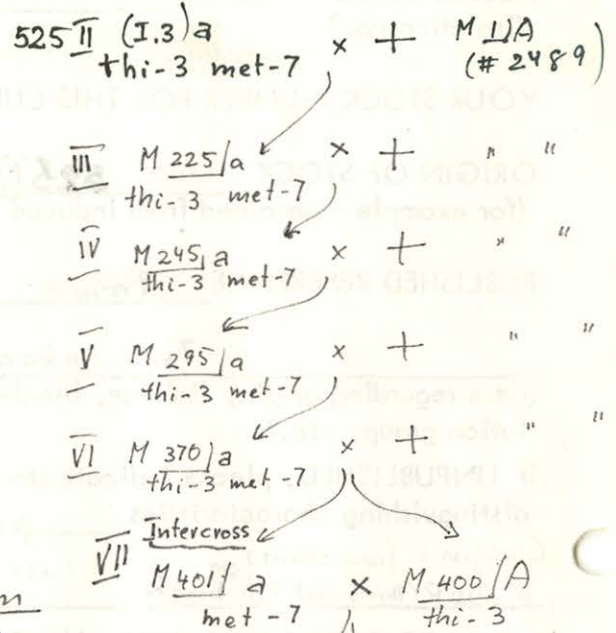 525 II (I.3) a × + M 1/A
thi-3 met-7 (#2489)
III M 225/a × + " "
thi-3 met-7
IV M 245/a × + " "
thi-3 met-7
V M 295/a × + " "
thi-3 met-7
VI M 370/a × + " "
thi-3 met-7
VII Intercross
M 401/a × M 400/A
met-7 thi-3